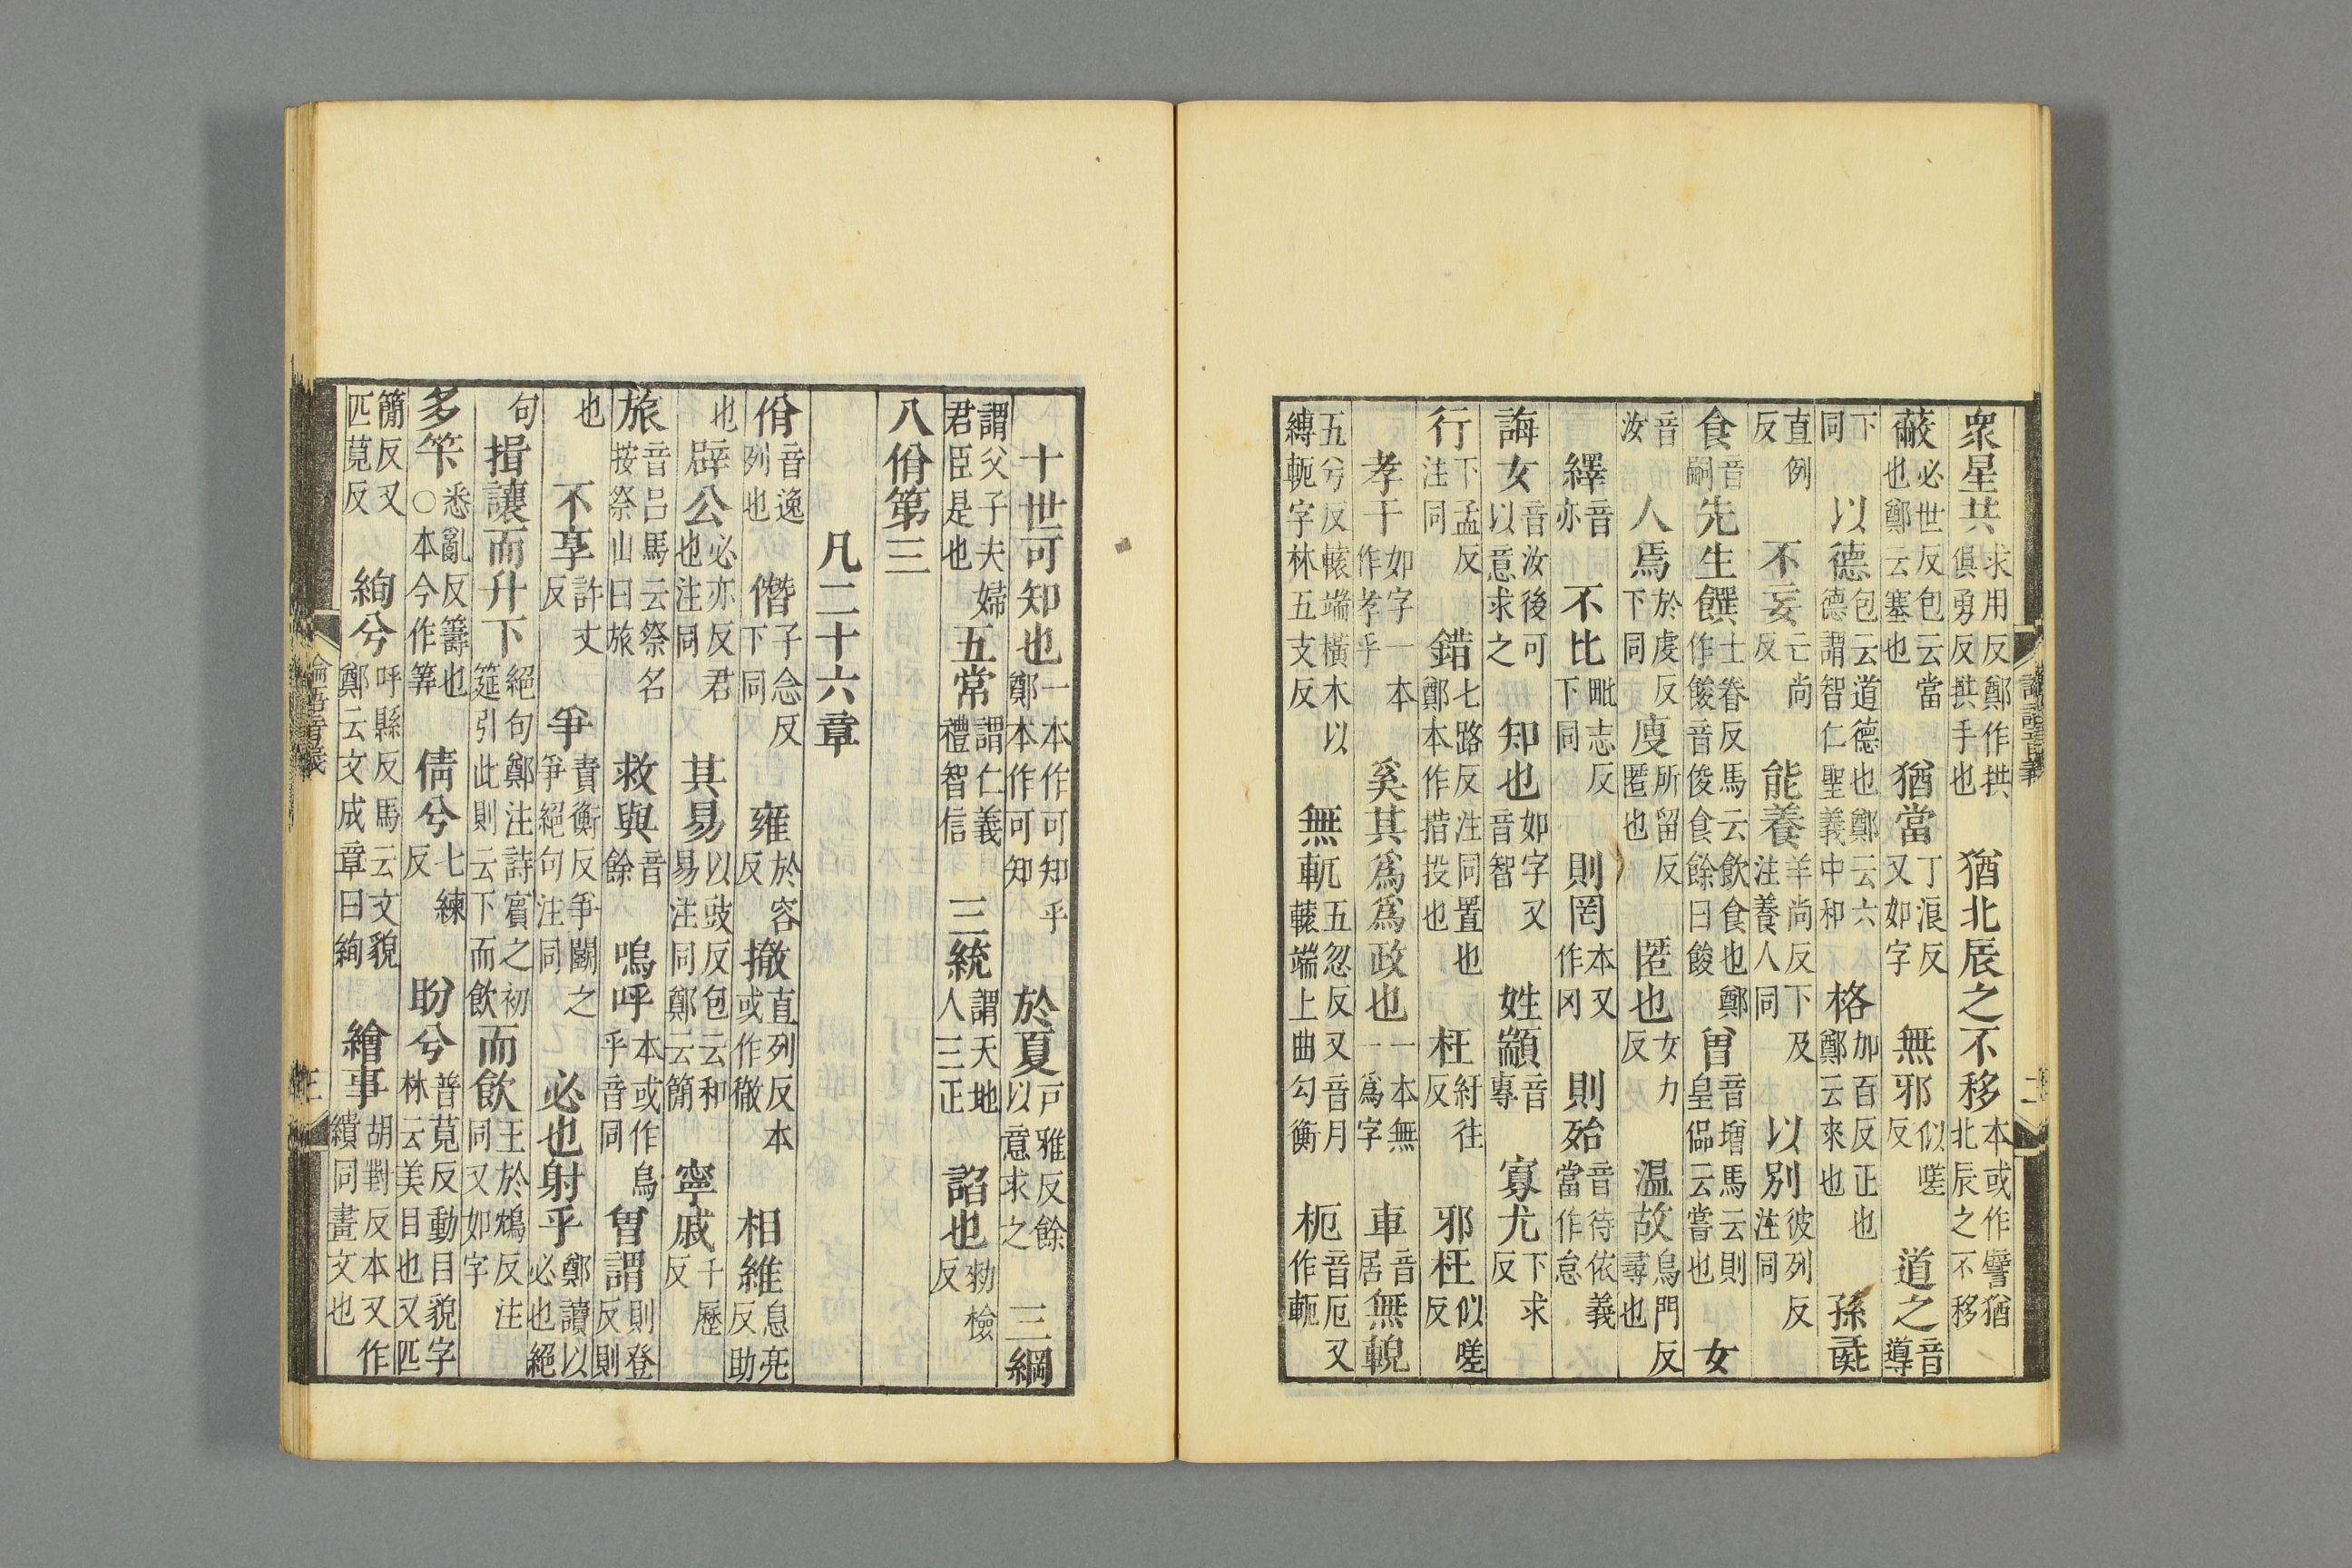 衆星共求用反鄭作拱俱勇反拱手也猶北辰之不移本或作譬猶北辰之不移
蔽必世反包云當也鄭云塞也猶當丁浪反又如字無邪似嗟反道之音導
下同以德包云道德也鄭云六德謂智仁聖義中和格加百反正也鄭云來也孫
直例反不妄亡尚反能養羊尚反下及注養人同以别彼列反注同
食音嗣先生饌士眷反馬云飲食也鄭作餕音俊食餘曰餕曾音增馬云則皇偘云嘗也女
音汝人焉於虔反下同廋所留反匿也匿也女力反温故烏門反尋也
繹音亦不比毗志反下同則罔本又作冈則殆音待依義當作怠
誨女音汝後可以意求之知也如字又音智姓顓音專寡尤下求反
行下孟反注同錯七路反注同置也鄭本作措投也枉紆往反邪枉似嗟反
孝于如字一本作孝乎奚其爲爲政也一本無一爲字車音居無輗
五兮反轅端橫木以縛軛字林五支反無軏五忽反又音月轅端上曲勾衡枙音厄又作軛
論語音義
二
十世可知也一本作可知乎鄭本作可知於夏戸雅反餘以意求之三綱
謂父子夫婦君臣是也五常謂仁義禮智信三統謂天地人三正諂也勑檢反
八佾第三
凡二十六章
佾音逸列也僭子念反下同雍於容反撤直列反本或作徹相維息亮反助
也辟公必亦反君也注同其易以豉反包云和易注同鄭云簡寧戚千歷反
旅音吕馬云祭名按祭山曰旅救與音餘嗚呼本或作烏乎音同曾謂則登反則
也不享許丈反爭責衡反爭鬭之爭絕句注同必也射乎鄭讀以必也絕
句揖讓而升下絕句鄭注詩賓之初筵引此則云下而飲而飲王於鴆反注同又如字
多筭悉亂反籌也○本今作筭倩兮七練反盼兮普莧反動目貌字林云美目也又匹
簡反又匹莧反絢兮呼縣反馬云文貌鄭云文成章曰絢繪事胡對反本又作繢同畫文也
論語音義
三